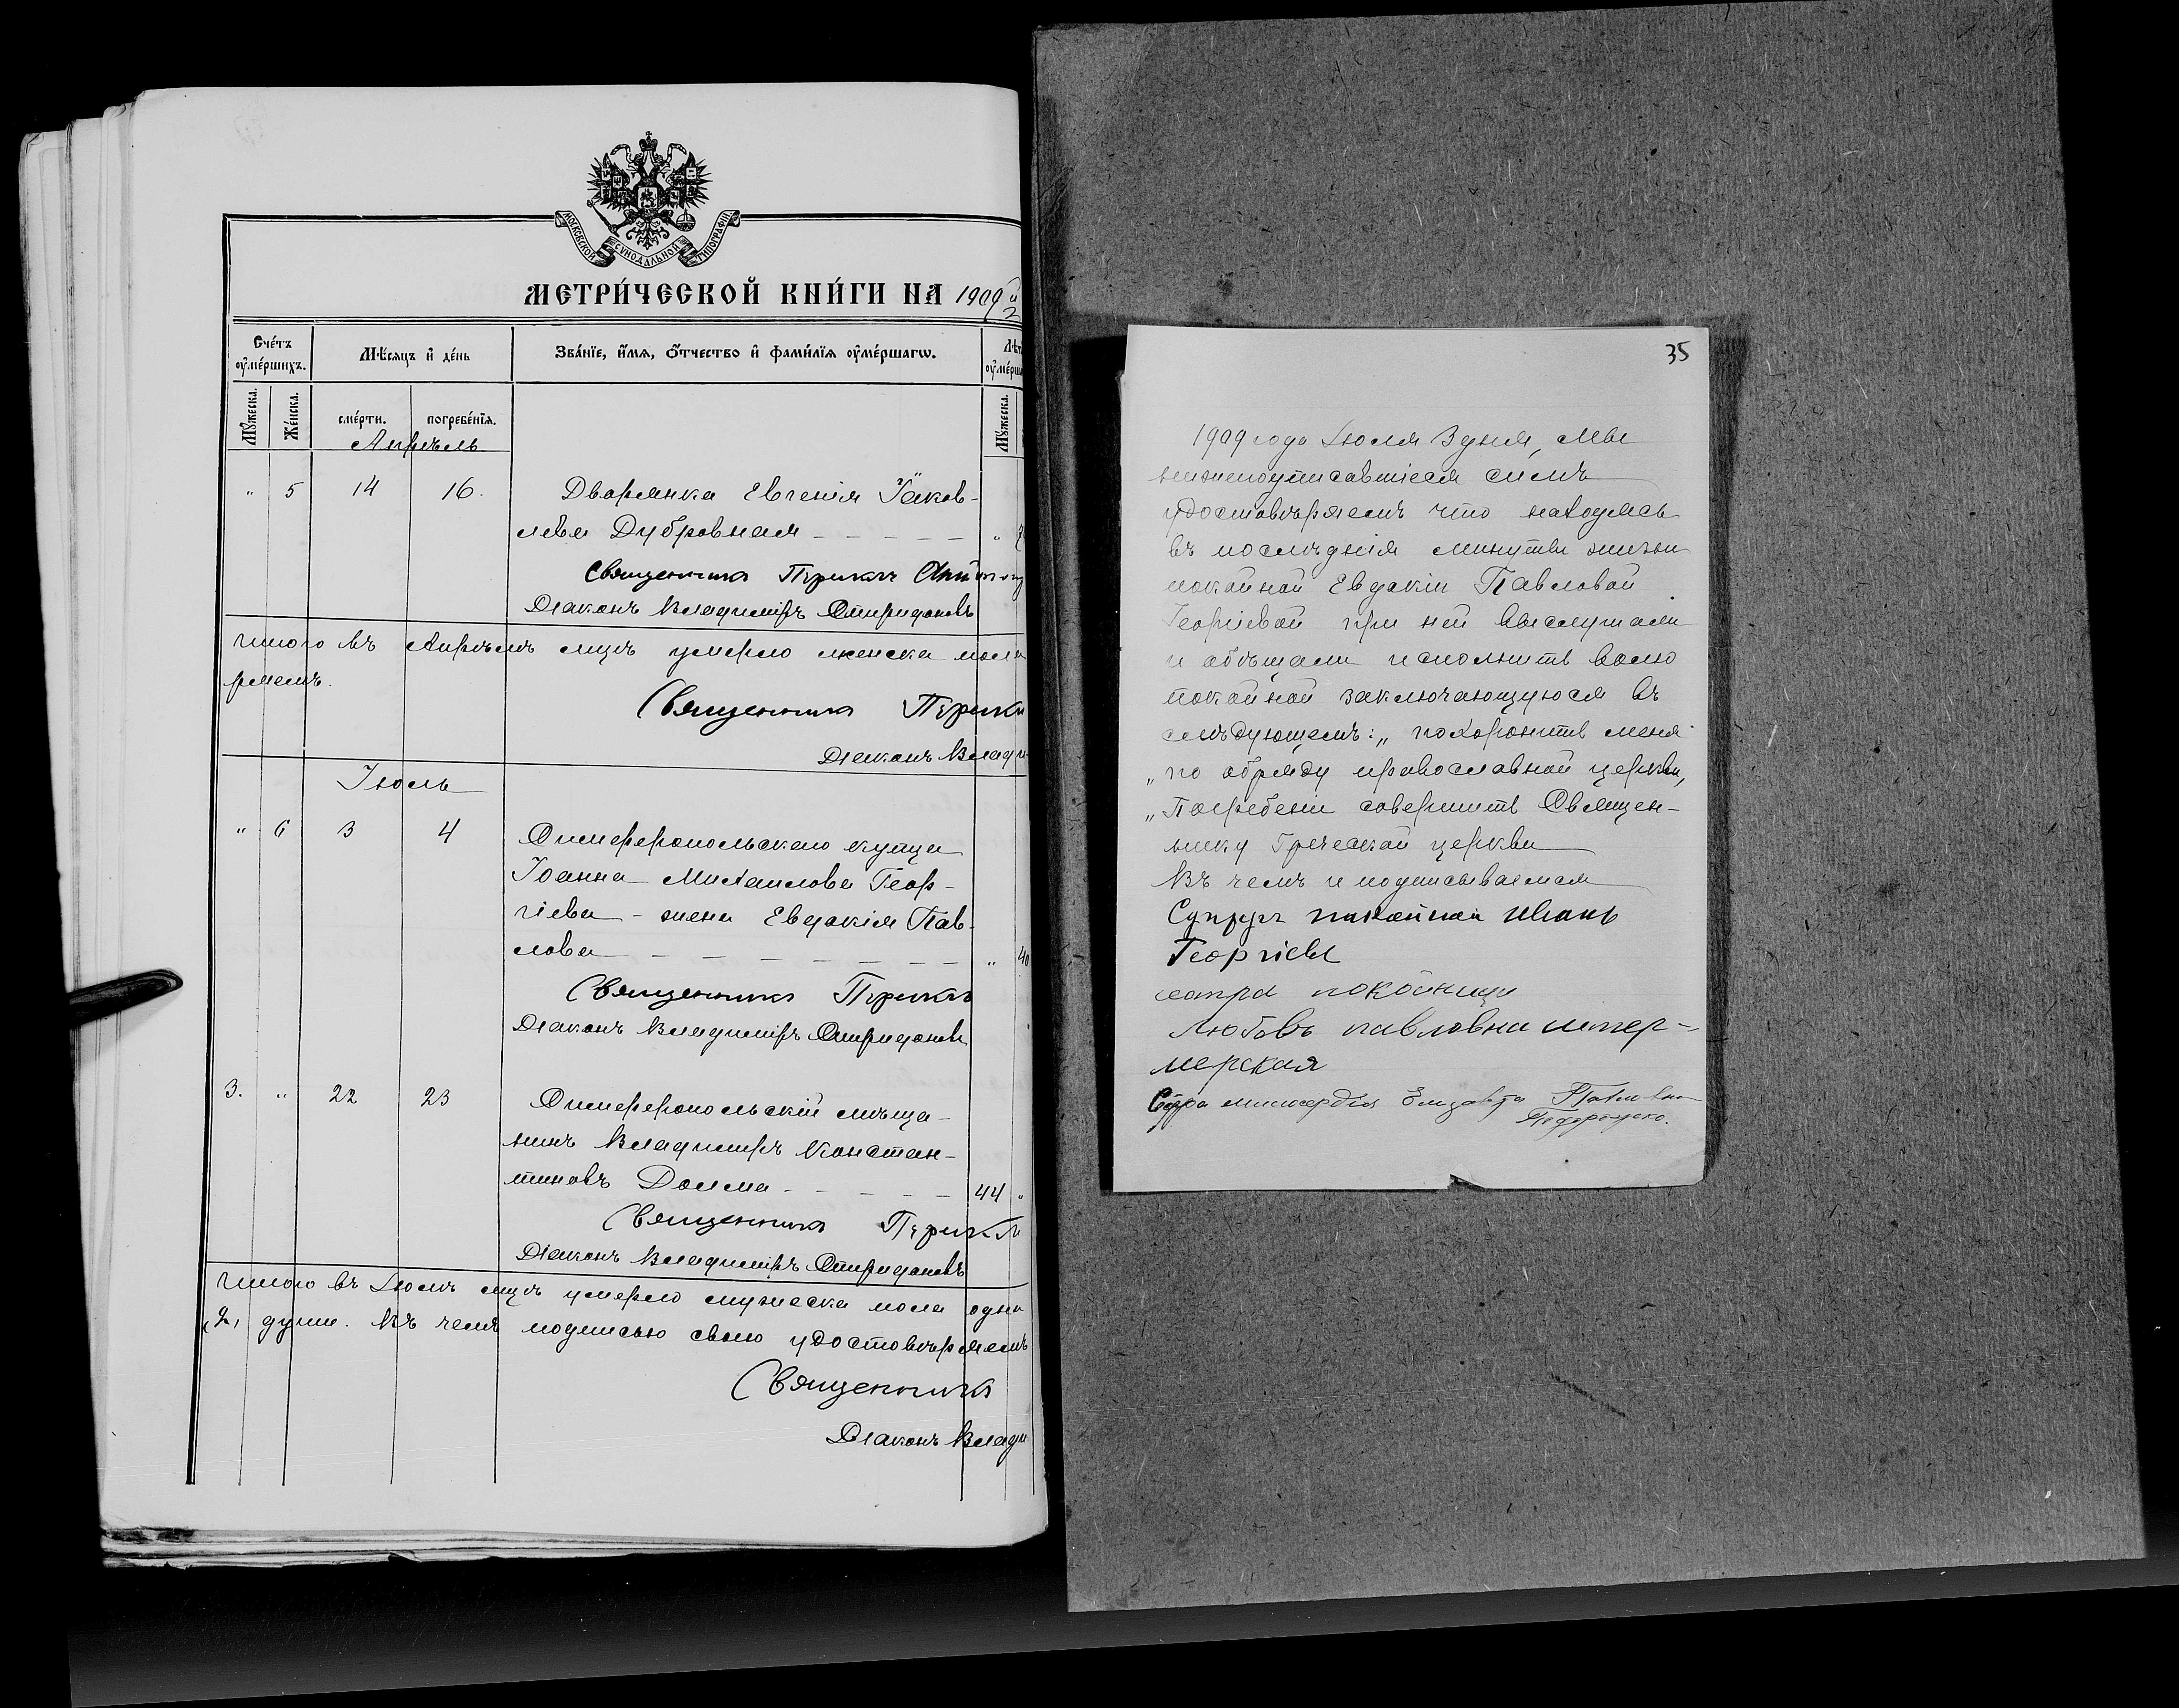 МОСКОВСКОЙ СѴНОДАЛЬНОЙ ТИПОГРАФІИ
МЕТРИ́ЧЕСКОЙ КНИ́ГИ НА 1909й
Счéтъ оу҆мéршихъ.
Мѣ́сяцъ и҆ дéнь
Звáнїе, и҆́мѧ, ѻ҆́тчество и҆ фами́лїѧ оу҆мéршагѡ.
Мꙋ́жеска.
Жéнска.
смéрти.
погребéнїѧ.
Мꙋ́жеска.
Апрѣль
" 5 14 16. Дворянка Евгенія Яков-
лева Дубровная "
Священникъ Периклъ
Діаконъ Владиміръ Спиридоновъ
Итого въ Апрѣлѣ мцѣ умерло женска пола
Священникъ
Діаконъ Влади
Іюль
" 6 3 4 Симферопольскаго купца
Іоанна Михаилова Геор-
гіева - жена Евдокія Пав-
лова " 40
Священникъ Периклъ
Діаконъ Владиміръ Спиридоновъ
3. " 22 23 Симферопольскій мѣща-
нинъ Владиміръ Констан-
тиновъ 44 "
Священникъ
Діаконъ Владиміръ Спиридоновъ
Итого въ Іюлѣ мцѣ умерло мужеска пола одна
душа. Въ чемъ подписью свою удостовѣряемъ
Священникъ
Діаконъ Влади
35
1909 года Іюля 3 дня, мы
нижеподписавшіеся симъ
удостовѣряемъ что находясь
въ послѣднія минуты жизни
покойной Евдокіи Павловой
Георгіевой при ней выслушали
и обѣщали исполнить волю
покойной заключающуюся въ
слѣдующемъ: „похоронить меня
„по обряду православной церкви,
„Погребеніе совершить Священ-
нику Греческой церкви
Въ чемъ и подписываемся
Супругъ покойной Иванъ
Георгіевъ
сестра покойницы
Любовь павловна штер-
мерская
Сестра милосердія Елизавета Павловна